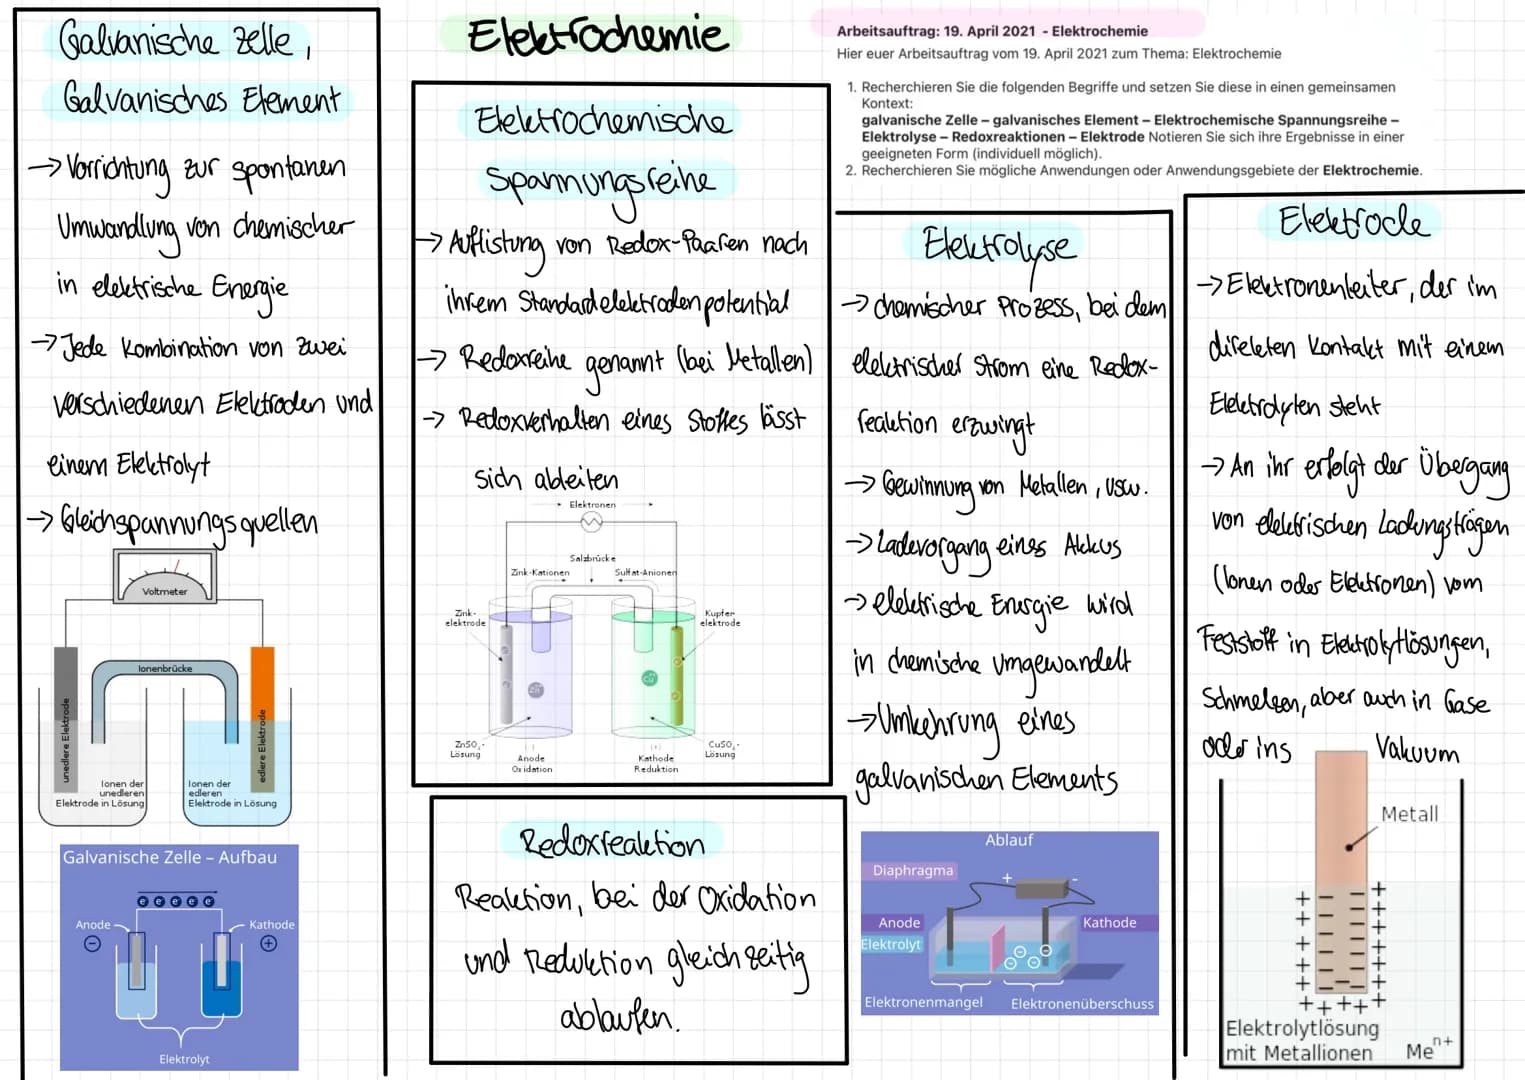 Galvanische Zelle,
Galvanisches Element
→ Vorrichtung zur spontanen
Umwandlung von chemischer
in elektrische Energie
→ Jede Kombination von zwei
verschiedenen Elektroden und
einem Elektrolyt
→ Gleichspannungsquellen
Voltmeter
Ionenbrücke
unedlere Elektrode
edlere Elektrode
Ionen der
unedleren
Elektrode in Lösung
Ionen der
edleren
Elektrode in Lösung
Galvanische Zelle – Aufbau
e e e e e
Anode
Kathode
−
+
Elektrolyt
Elektrochemie
Elektrochemische
Spannungsreihe
→ Auflistung von Redox-Paaren nach
ihrem Standardelektrodenpotential
→ Redoxreihe genannt (bei Metallen)
→ Redoxverhalten eines Stoffes lässt
sich ableiten
Elektronen
Salzbrücke
Zink-Kationen
Sulfat-Anionen
Zink-
elektrode
Kupfer
elektrode
Zn
Cu
ZnSO₄-
Lösung
(-)
Anode
Oxidation
(+)
Kathode
Reduktion
CuSO₄-
Lösung
Redoxreaktion
Reaktion, bei der Oxidation
und Reduktion gleichzeitig
ablaufen.
Arbeitsauftrag: 19. April 2021 - Elektrochemie
Hier euer Arbeitsauftrag vom 19. April 2021 zum Thema: Elektrochemie
1. Recherchieren Sie die folgenden Begriffe und setzen Sie diese in einen gemeinsamen
Kontext:
galvanische Zelle – galvanisches Element – Elektrochemische Spannungsreihe –
Elektrolyse – Redoxreaktionen – Elektrode Notieren Sie sich ihre Ergebnisse in einer
geeigneten Form (individuell möglich).
2. Recherchieren Sie mögliche Anwendungen oder Anwendungsgebiete der Elektrochemie.
Elektrolyse
→ chemischer Prozess, bei dem
elektrischer Strom eine Redox-
reaktion erzwingt
→ Gewinnung von Metallen, usw.
→ Ladevorgang eines Akkus
→ elektrische Energie wird
in chemische umgewandelt
→ Umkehrung eines
galvanischen Elements
Ablauf
Diaphragma
+
-
Anode
Kathode
Elektrolyt
Elektronenmangel
Elektronenüberschuss
Elektrode
→ Elektronenleiter, der im
direkten Kontakt mit einem
Elektrolyten steht
→ An ihr erfolgt der Übergang
von elektrischen Ladungsträgen
(Ionen oder Elektronen) vom
Feststoff in Elektrolytlösungen,
Schmelzen, aber auch in Gase
oder ins Vakuum
Metall
Elektrolytlösung
mit Metallionen
Meⁿ⁺